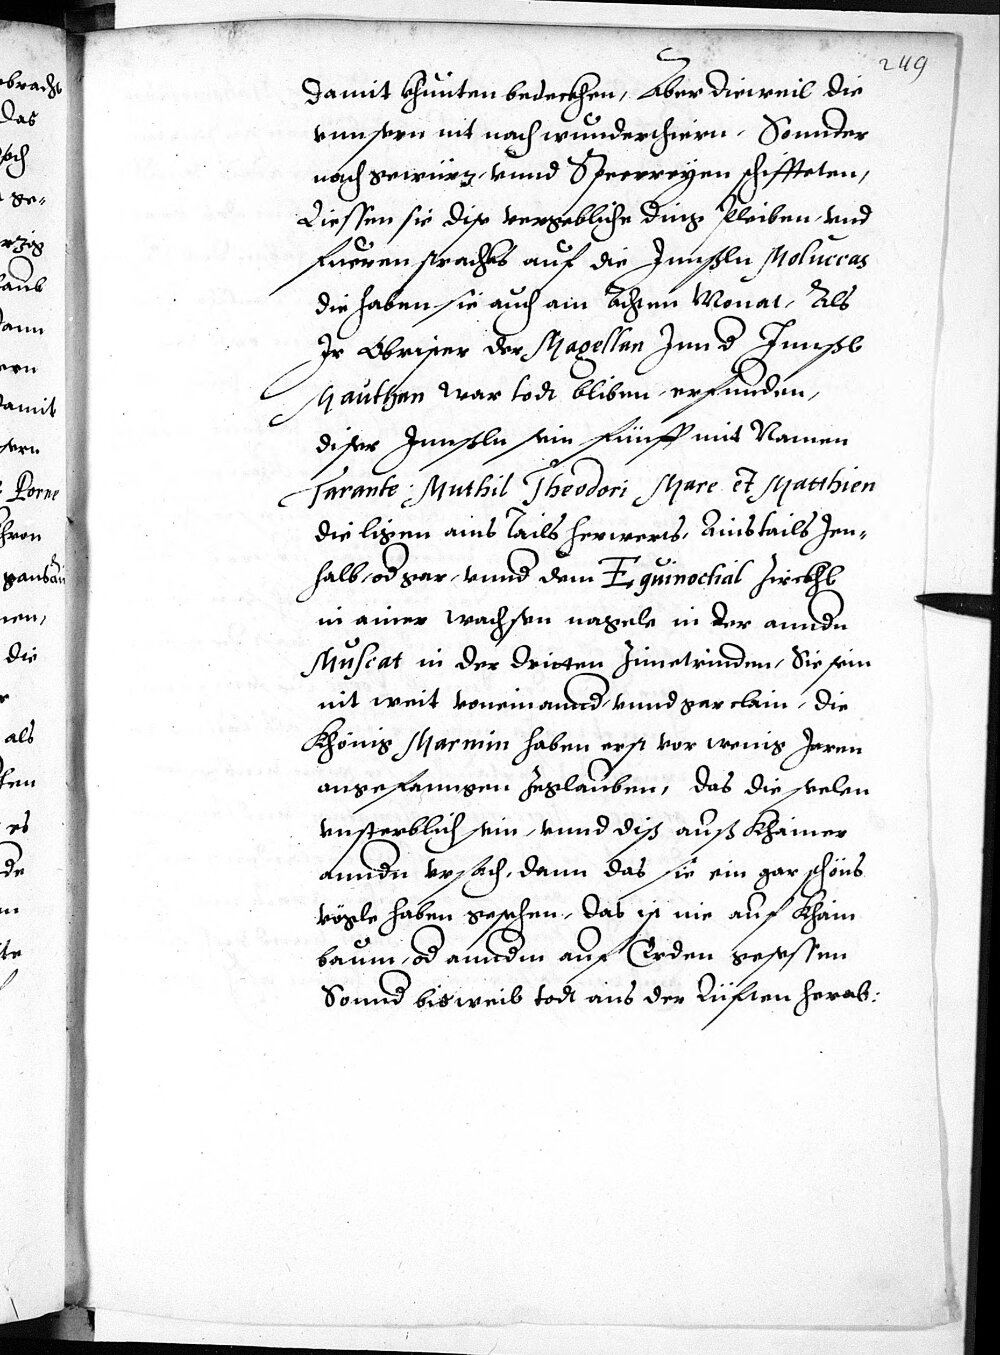 249
damit khunten bedeckhen, Aber dieweil die
vnnsern nit nach wunderthiern, Sonnder
nach gewürz, vnnd Specereyen schiffteten,
Liessen sie dise vergebliche ding bleiben, vnd
fueren strackhs auf die Innßln Moluccas
die haben sie auch am Achten Monat, Als
Ir Obrister der Magellan Inn d Innßl
Mauthan war todt bliben, erfunden,
diser Innßln sein fünff mit Namen
Tarante Muthil Theodori Mare et Matthien
die ligen ains tails herwerts, Ainstails Jen-
halb, od gar, vnnd dem Equinoctial Zirckhl
in ainer wachsen nagele in der anndn
Muscat in der dritten Zimetrinden, Sie sein
nit weit voneinannd, vnnd gar clain, die
Khönig Marmin haben erst vor wenig Jaren
angefanngen Zeglauben, das die seelen
vnsterblich sein, vnnd diß auß Khainer
anndn vrsach, dann das sie ein gar schöns
vögle haben gesehen, das ist nie auf Khain
baum, od anndm auf Erden gesessen
Sonnd bisweil todt aus der Lüfften herab:
bracht
das
ge-
laub
dann
damit
Porne
die
als
es